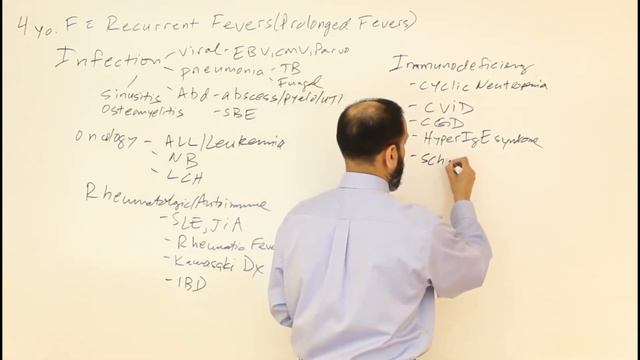 4 yo. F c̄ Recurrent Fevers (Prolonged Fevers)
Infection - viral - EBV, CMV, Parvo
- pneumonia - TB
- Fungal
Sinusitis - Abd - abscess/pyelo/UTI
Osteomyelitis - SBE
Oncology - ALL/Leukemia
- NB
- LCH
Rheumatologic/Autoimmune
- SLE, JiA
- Rheumatic Feve
- Kawasaki Dx
- IBD
Immunodeficiency
- Cyclic Neutropenia
- CViD
- CGD
- HyperIgE syndrome
- Sch